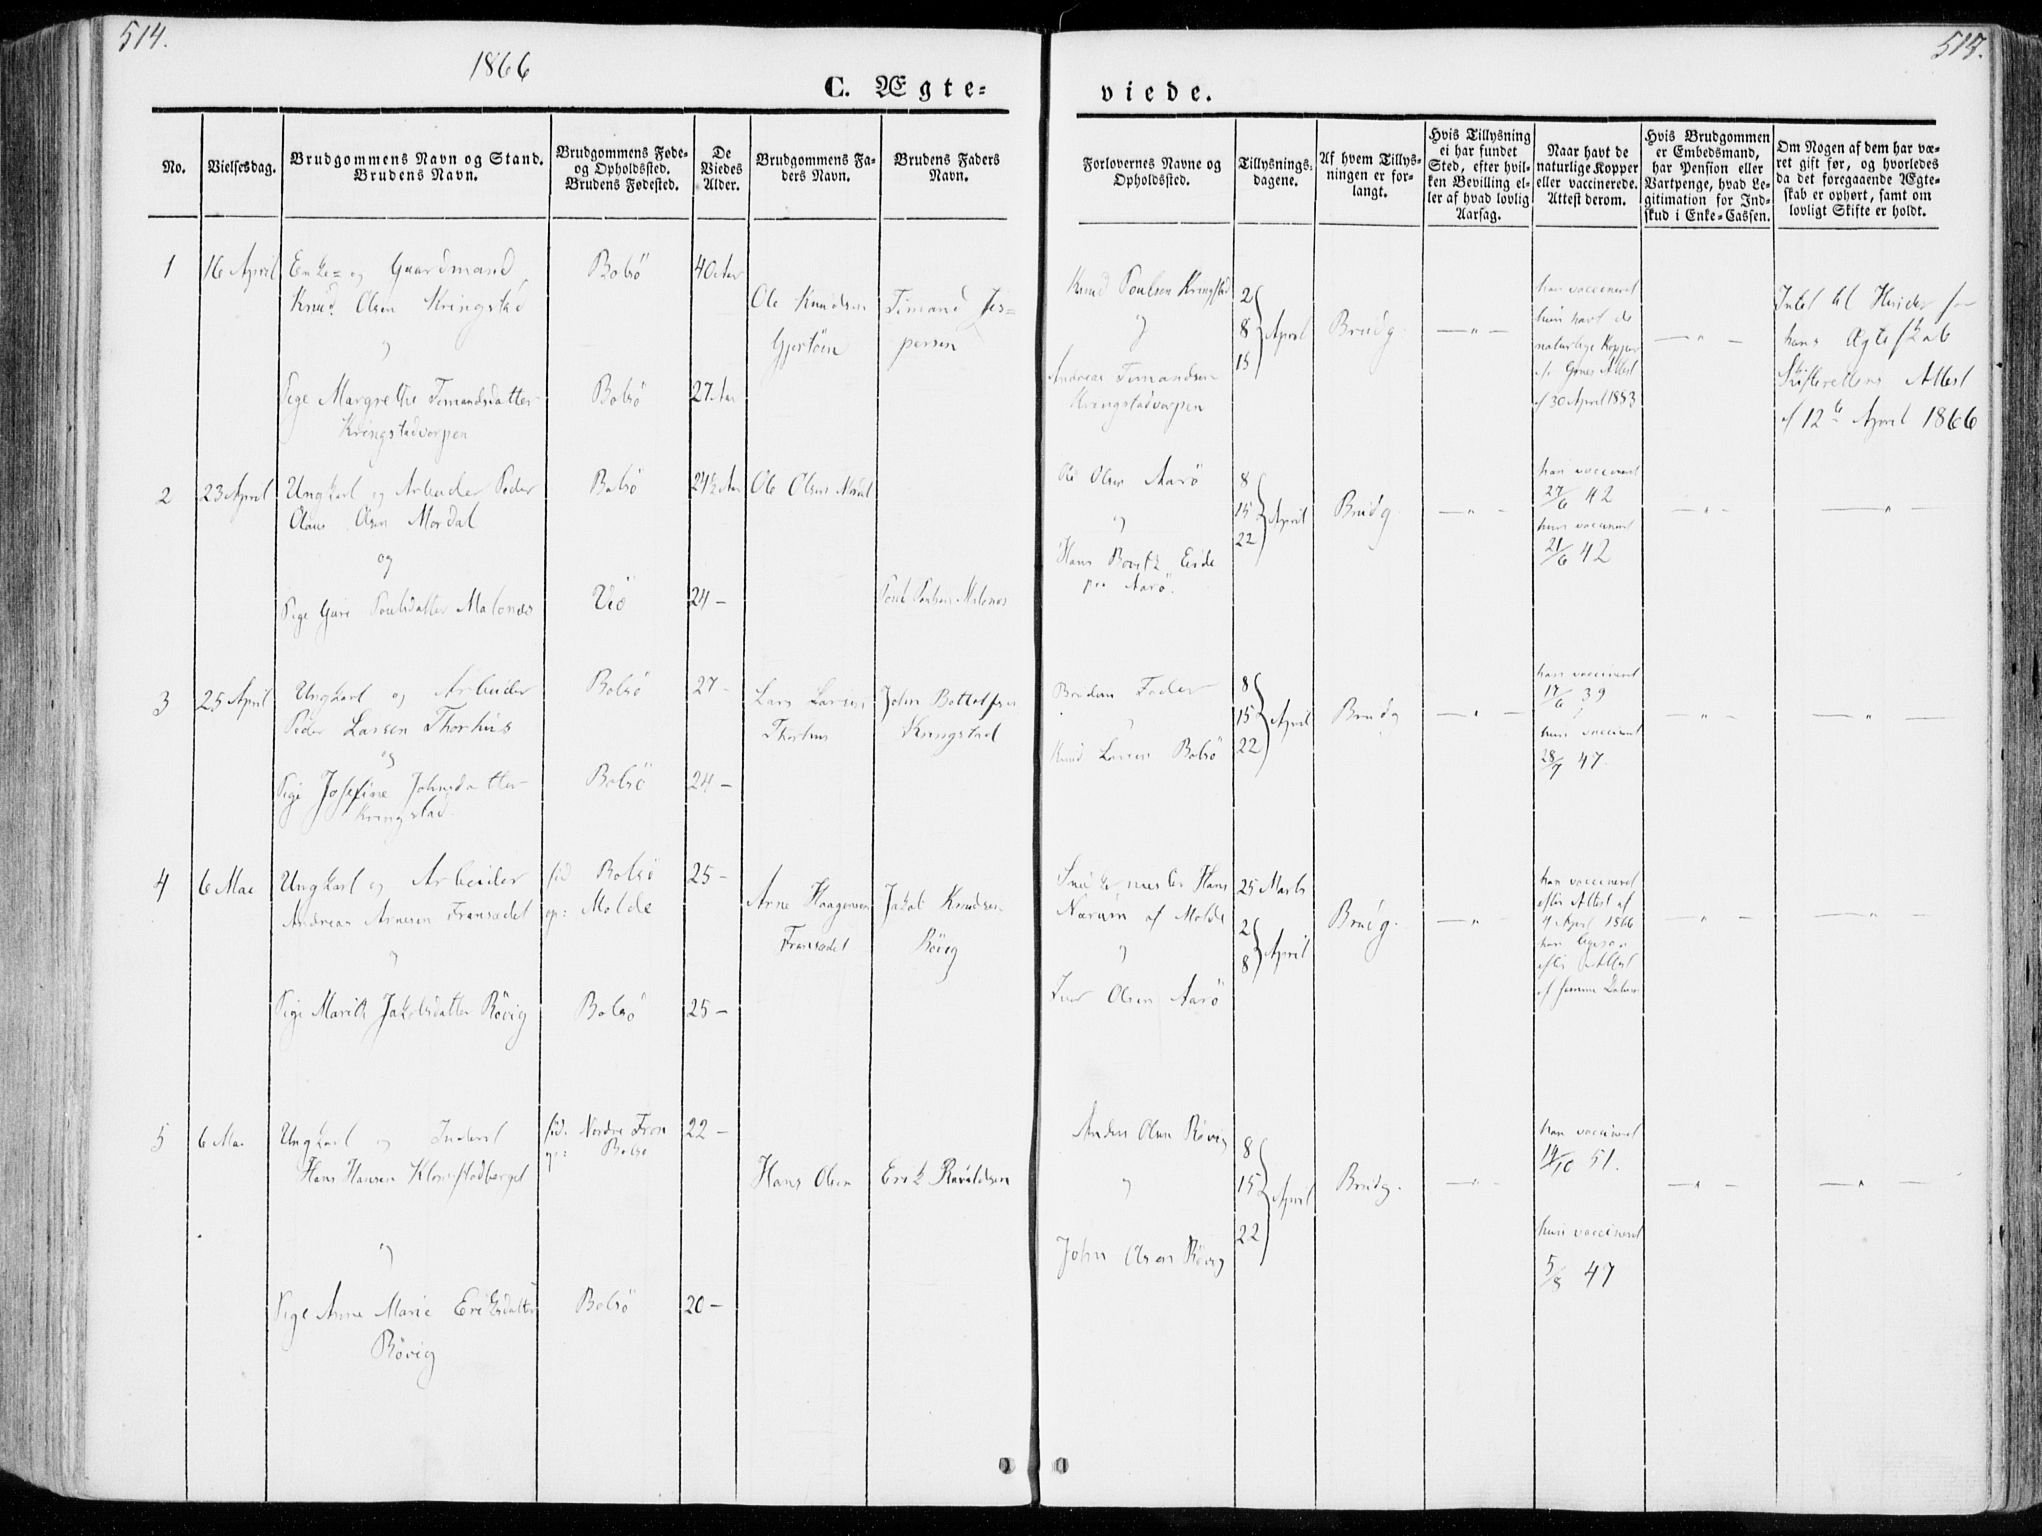 514.
1866
C. Ægte-
No.
Vielsesdag.
Brudgommens Navn og Stand.
Brudens Navn.
Brudgommens Føde-
og Opholdssted.
Brudens Fødested.
De
Viedes
Alder.
Brudgommens Fa-
ders Navn.
Brudens Faders
Navn.
1
16 April
Enke= og Gaardmand
Knud Olsen Kringstad
Pige Margrethe Timandsdatter
Kringstadvorpen
Bolsö
Bolsö
40 Aar
27 Aar
Ole Knudsen
Gjertöen
Timand Jes=
persen
2
23 April
Ungkarl og Arbeider Peder
Olaus Olsen Mordal
og
Pige Guri Poulsdatter Malonæs
Bolsö
Veö
24½ Aar
24 –
Ole Olsen Mordal
Poul Poulsen Malonæs
3
25 April
Ungkarl og Arbeider
Peder Larsen Thorhus
og
Pige Josefine Johnsdatter
Kringstad
Bolsö
Bolsö
27 –
24 –
Lars Larsen
Thorhus
John Bottolfsen
Kringstad
4
6 Mai
Ungkarl og Arbeider
Andreas Arnesen Fransædet
Pige Marith Jakobsdatter Rövig
föd Bolsö
op: Molde
Bolsö
25 –
25 –
Arne Haagensen
Fransædet
Jakob Knudsen
Rövig
5
6 Mai
Ungkarl og Inderst
Hans Hansen
Pige Anne Marie Eriksdatter
Rövig
föd: Nordre Fron
op: Bolsö
Bolsö
22 –
20 –
Hans Olsen
Erik
515.
viede.
Forlovernes Navne og
Opholdssted.
Tillysnings-
dagene.
Af hvem Tillys-
ningen er for-
langt.
Hvis Tillysning
ei har fundet
Sted, efter hvil-
ken Bevilling el-
ler af hvad lovlig
Aarsag.
Naar havt de
naturlige Kopper
eller vaccinerede.
Attest derom.
Hvis Brudgommen
er Embedsmand,
har Pension eller
Vartpenge, hvad Le-
gitimation for Ind-
skud i Enke-Cassen.
Om Nogen af dem har væ-
ret gift før, og hvorledes
da det foregaaende Ægte-
skab er ophørt, samt om
lovligt Skifte er holdt.
Knud Poulsen Kringstad
Andreas Timandsen
Kringstadvorpen
2
8
15
April
Brudg.
han vaccineret
hun havt de
naturlige Kopper
Attest
af 30 April 1853
Intet til Hinder for
hans Ægteskab
Skifterettens Attest
af 12te April 1866
Ole Olsen Aarö
Hans Eide
paa Aarö.
8
15
22
April
Brudg.
han vaccineret
27/6 42
hun vaccineret
21/6 42
Brudens Fader
Knud Larsen Bolsö
8
15
22
April
Brudg
han vaccineret
17/6 39
hun vaccineret
28/7 47
Hans
Nærum af Molde
Iver Olsen Aarö
25 Marts
2
8
April
Brudg.
han vaccineret
efter Attest af
4 April 1866
hun ligesaa
efter Attest
af samme Datum
Anders Olsen Rövig
John Olsen Rövig
8
15
22
April
Brudg.
han vaccineret
14/10 51.
hun vaccineret
5/8 47